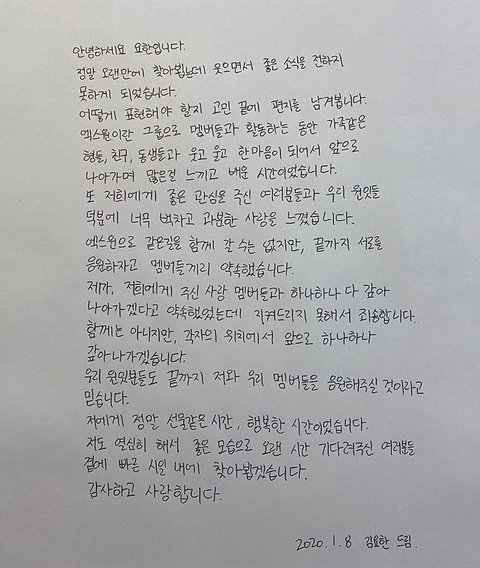 안녕하세요 요한입니다.
정말 오랜만에 찾아뵙는데 웃으면서 좋은 소식을 전하지
못하게 되었습니다.
어떻게 표현해야 할지 고민 끝에 편지를 남겨봅니다.
엑스원이란 그룹으로 멤버들과 활동하는 동안 가족같은
형들, 친구, 동생들과 웃고 울고 한마음이 되어서 앞으로
나아가며 많은걸 느끼고 배운 시간이었습니다.
또 저희에게 좋은 관심을 주신 여러분들과 우리 원잇들
덕분에 너무 벅차고 과분한 사랑을 느꼈습니다.
엑스원으로 같은길을 함께 갈 수는 없지만, 끝까지 서로를
응원하자고 멤버들끼리 약속했습니다.
제가, 저희에게 주신 사랑 멤버들과 하나하나 다 갚아
나아가겠다고 약속했었는데 지켜드리지 못해서 죄송합니다.
함께는 아니지만, 각자의 위치에서 앞으로 하나하나
갚아나가겠습니다.
우리 원잇분들도 끝까지 저와 우리 멤버들을 응원해주실 것이라고
믿습니다.
저에게 정말 선물같은 시간, 행복한 시간이었습니다.
저도 열심히 해서 좋은 모습으로 오랜 시간 기다려주신 여러분들
곁에 빠른 시일 내에 찾아뵙겠습니다.
감사하고 사랑합니다.
2020.1.8 김요한 드림.